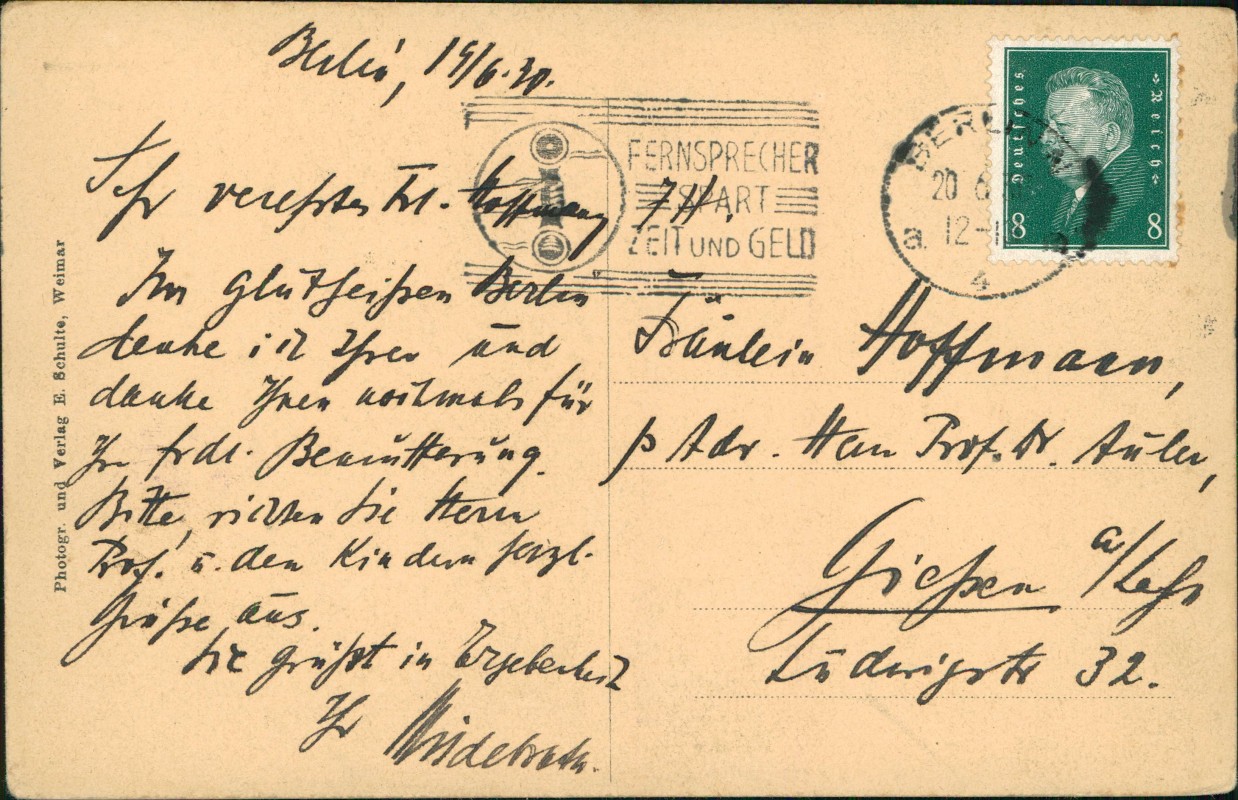 Berlin, 19/6.30.
Sehr verehrtes Frl. Hoffmann
Im glutheißen Berlin
denke ich Ihrer und
danke Ihnen nochmals für
Ihre frdl. Bemutterung.
Bitte, richten Sie Herrn
Prof. u. den Kindern herzl.
Grüße aus.
Sie grüßt in Ergebenheit
Ihr
FERNSPRECHER
SPART
ZEIT UND GELD
BERLIN
20 6
12-
a
4
Deutsches Reich
8 8
Fräulein Hoffmann,
p Adr. Herrn Prof. Dr. Auler,
Gießen a/Lahn
Ludwigstr 32.
Photogr. und Verlag E. Schulte, Weimar